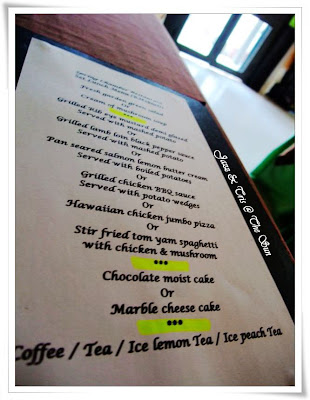 Fresh garden green salad
Or
Cream of mushroom soup
***
Grilled Rib eye mustard demi glazed
Served with mashed potato
Or
Grilled lamb loin black pepper sauce
Served with mashed potato
Or
Pan seared salmon lemon butter cream
Served with boiled potatoes
Or
Grilled chicken BBQ sauce
Served with potato wedges
Or
Hawaiian chicken jumbo pizza
Or
Stir fried tom yam spaghetti
with chicken & mushroom
***
Chocolate moist cake
Or
Marble cheese cake
***
Coffee / Tea / Ice lemon Tea / Ice peach Tea
& Tris @ The Sun